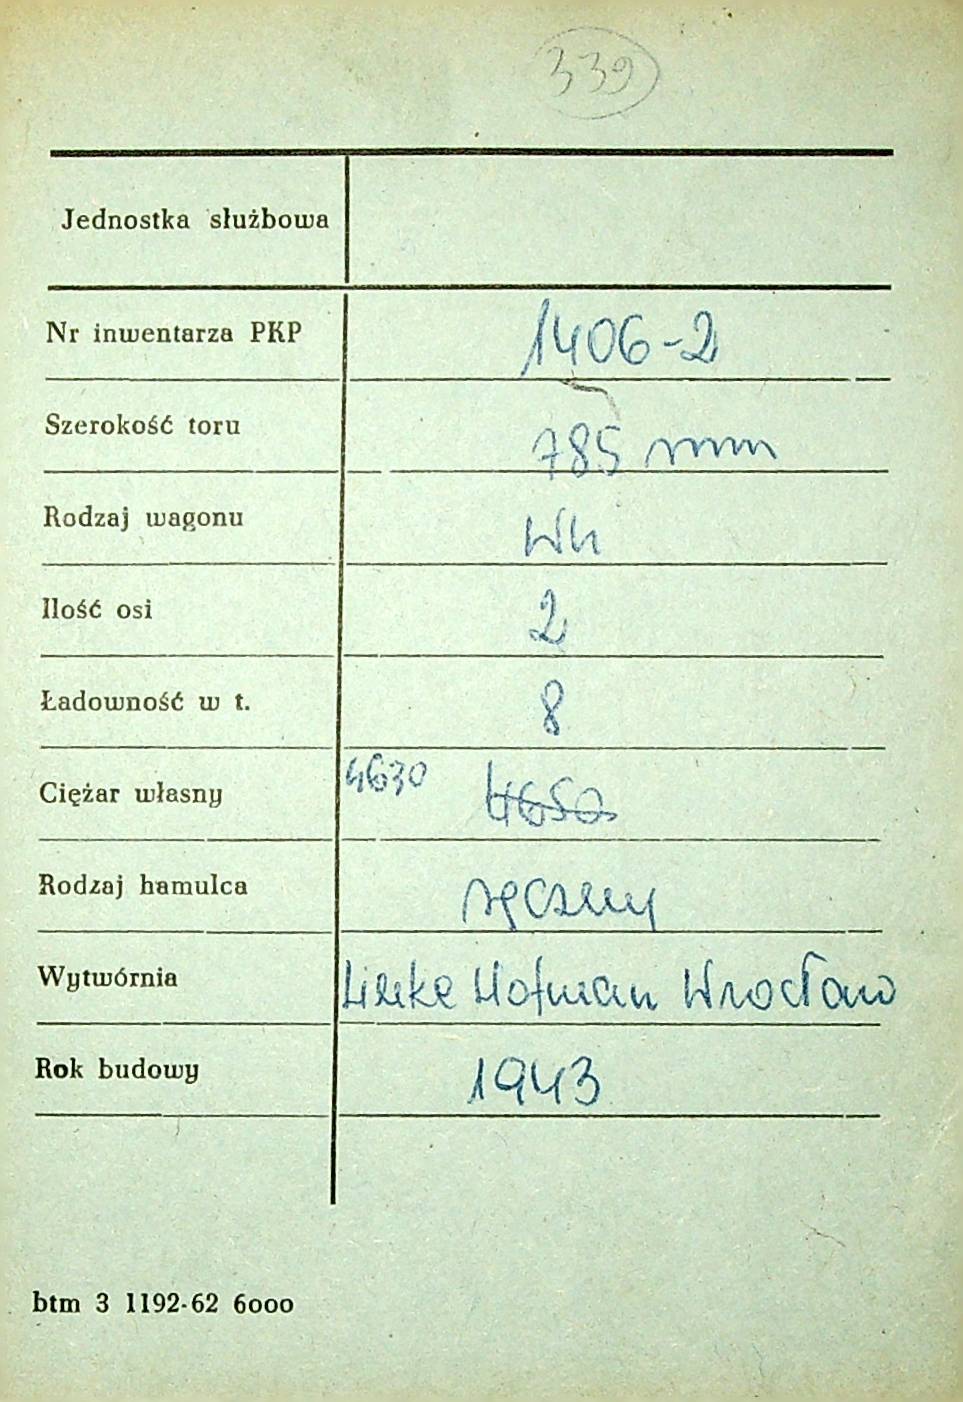 339
Jednostka służbowa
Nr inwentarza PKP 1406-2
Szerokość toru 785 mm
Rodzaj wagonu Wh
Ilość osi 2
Ładowność w t. 8
Ciężar własny 4630 4650
Rodzaj hamulca ręczny
Wytwórnia Linke Hofman Wrocław
Rok budowy 1943
btm 3 1192-62 6000